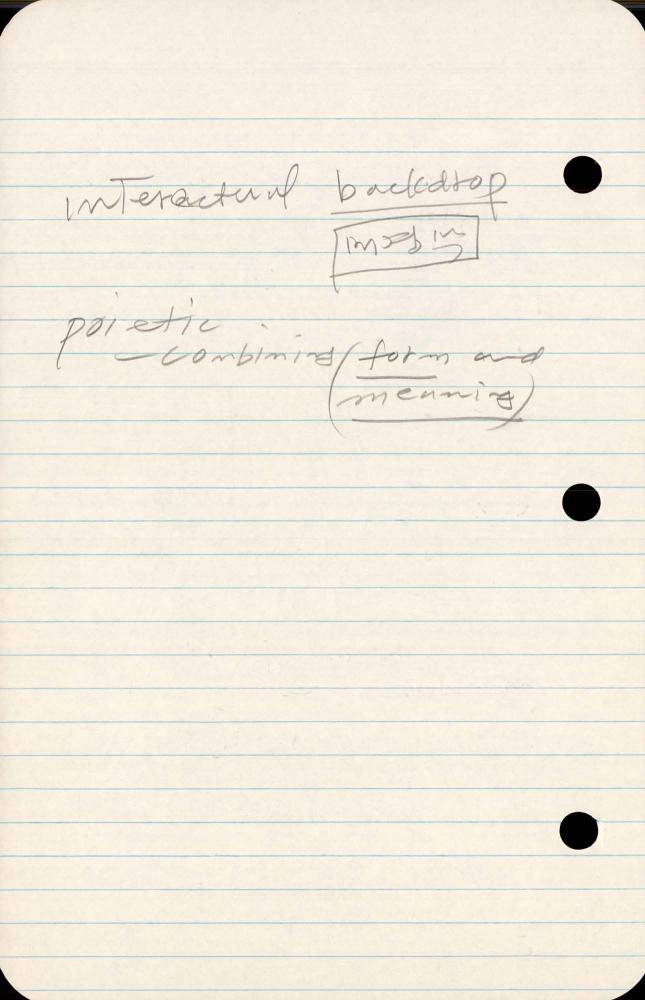 interactural backdrop
poietic
— combining (form and
meaning)